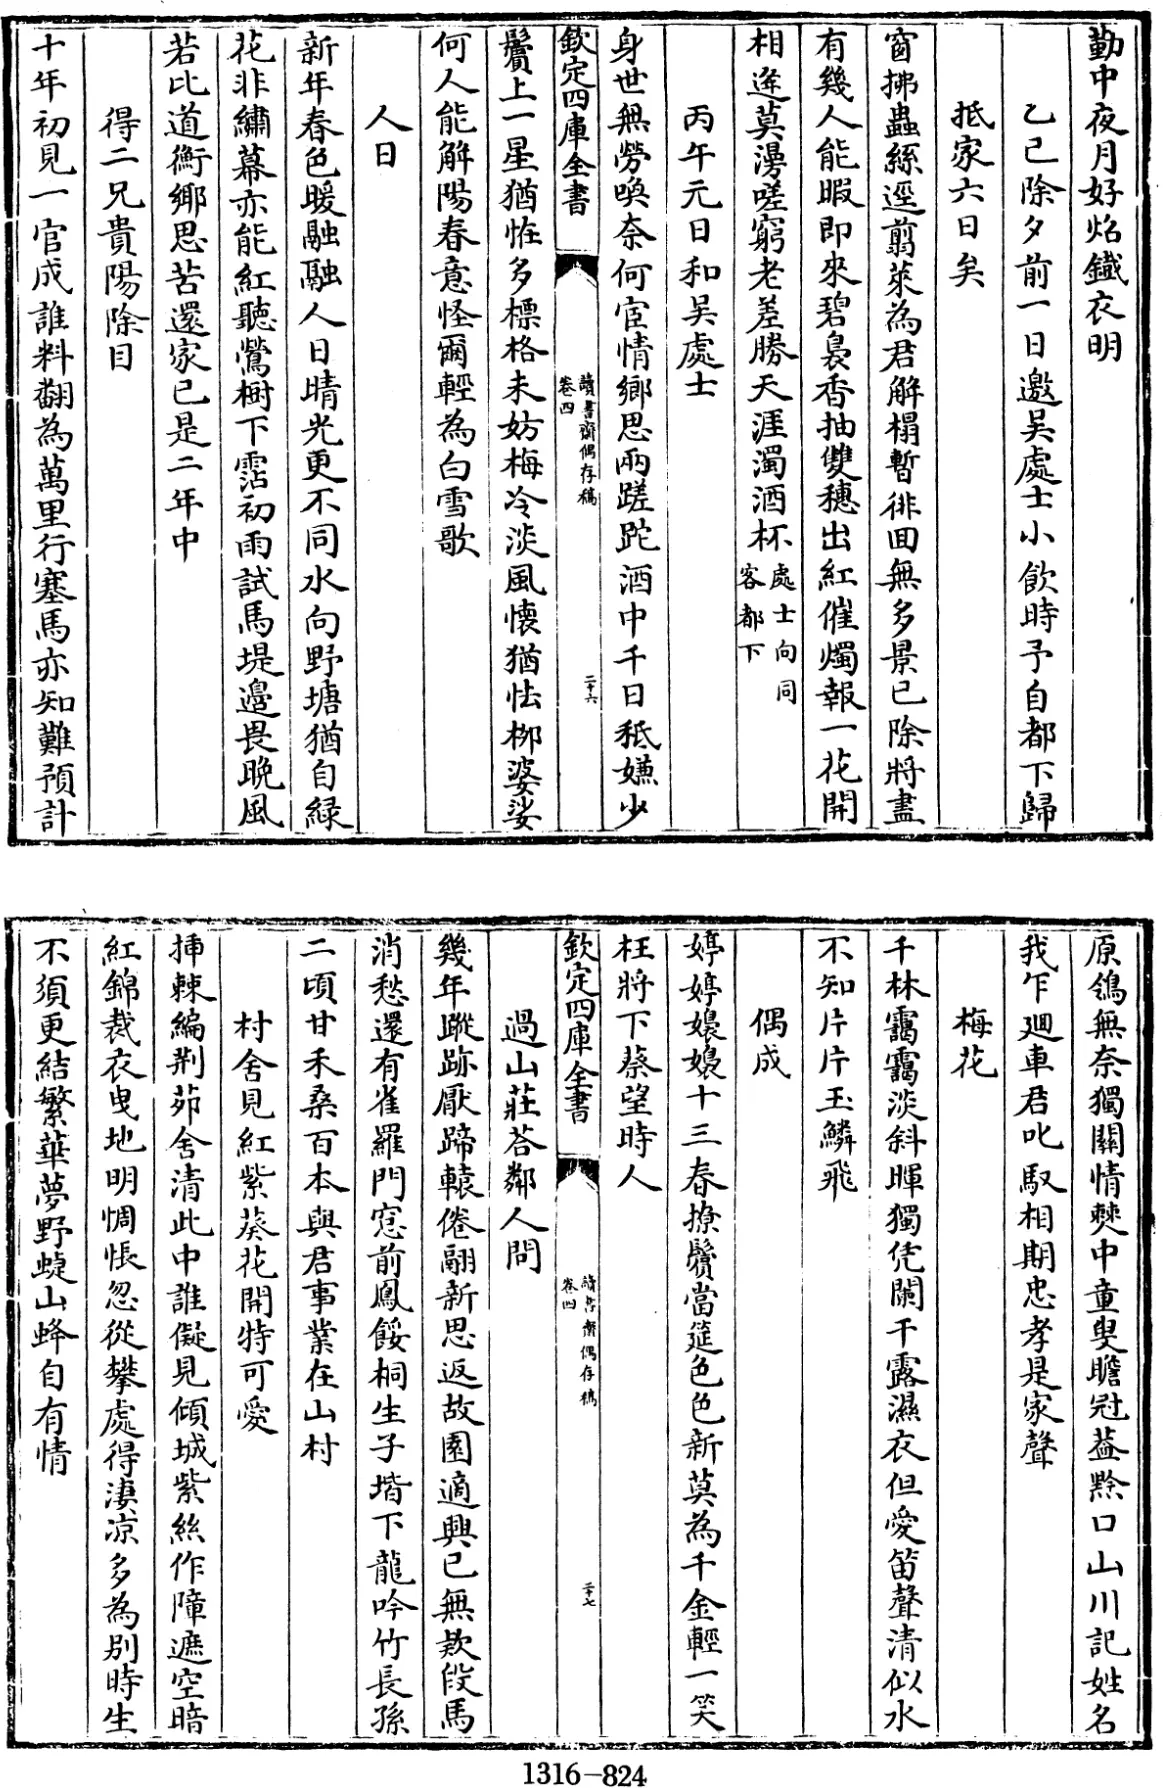 勤中夜月好焰鐵衣明
乙已除夕前一日邀吳處士小飲時予自都下歸
抵家六日矣
窗拂蟲絲逕翦萊為君解榻暫徘囬無多景已除將盡
有幾人能暇即來碧裊香抽雙穗出紅催燭報一花開
相逢莫漫嗟窮老差勝天涯濁酒杯處士向同客都下
丙午元日和吳處士
身世無勞喚奈何宦情鄉思兩蹉跎酒中千日秪嫌少
欽定四庫全書
讀書齋偶存稿
卷四
二十六
鬢上一星猶恠多標格未妨梅冷淡風懷猶怯柳婆娑
何人能解陽春意怪爾輕為白雪歌
人日
新年春色暖融融人日晴光更不同水向野塘猶自緑
花非繡幕亦能紅聽鶯樹下霑初雨試馬堤邉畏晩風
若比道衡鄉思苦還家已是二年中
得二兄貴陽除目
十年初見一官成誰料翻為萬里行塞馬亦知難預計
原鴒無奈獨關情僰中童叟瞻冠葢黔口山川記姓名
我乍廻車君叱馭相期忠孝是家聲
梅花
千林靄靄淡斜暉獨凭闌干露濕衣但愛笛聲清似水
不知片片玉鱗飛
偶成
婷婷嬝嬝十三春撩鬢當筵色色新莫為千金輕一笑
枉將下蔡望時人
欽定四庫全書
讀書齋偶存稿
卷四
二十七
過山莊荅鄰人問
幾年蹤跡厭蹄轅倦翮新思返故園適興已無欵段馬
消愁還有雀羅門窓前鳳餒桐生子堦下龍吟竹長孫
二頃甘禾桑百本與君事業在山村
村舍見紅紫葵花開特可愛
揷棘編荆茆舍清此中誰儗見傾城紫絲作障遮空暗
紅錦裁衣曳地明惆悵忽從攀處得淒凉多為別時生
不須更結繁華夢野蜨山蜂自有情
1316-824